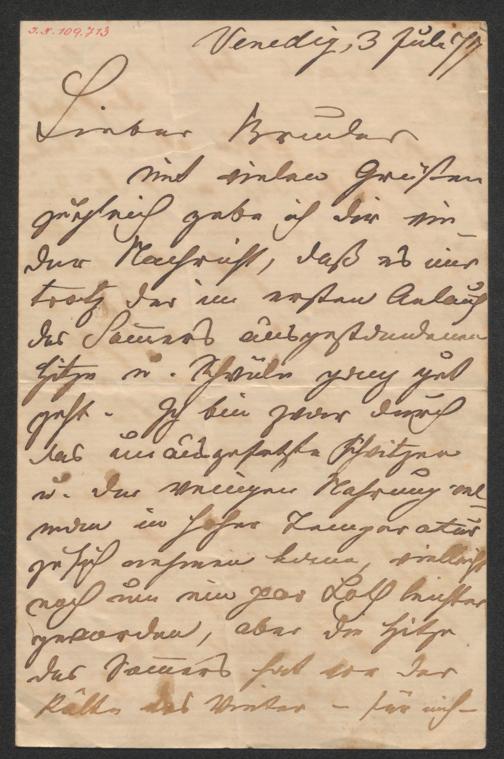 I.N. 109.713
Venedig, 3 Juli 77
Lieber Bruder
Mit vielen Grüßen
zugleich gebe ich dir
der Nachricht, daß es mir
trotz der im ersten Anlauf
des Som̅ers ausgestandenen
Hitze u. Schwüle ganz gut
geht. Ich bin zwar durch
das unausgesetzte Schwitzen
u. der wenigen Nahrung
man in hoher Temperatur
zu sich nehmen kann, vielleicht
noch um ein par Loth leichter
geworden, aber die Hitze
des Som̅ers hat vor der
Kälte des Winter – für mich –